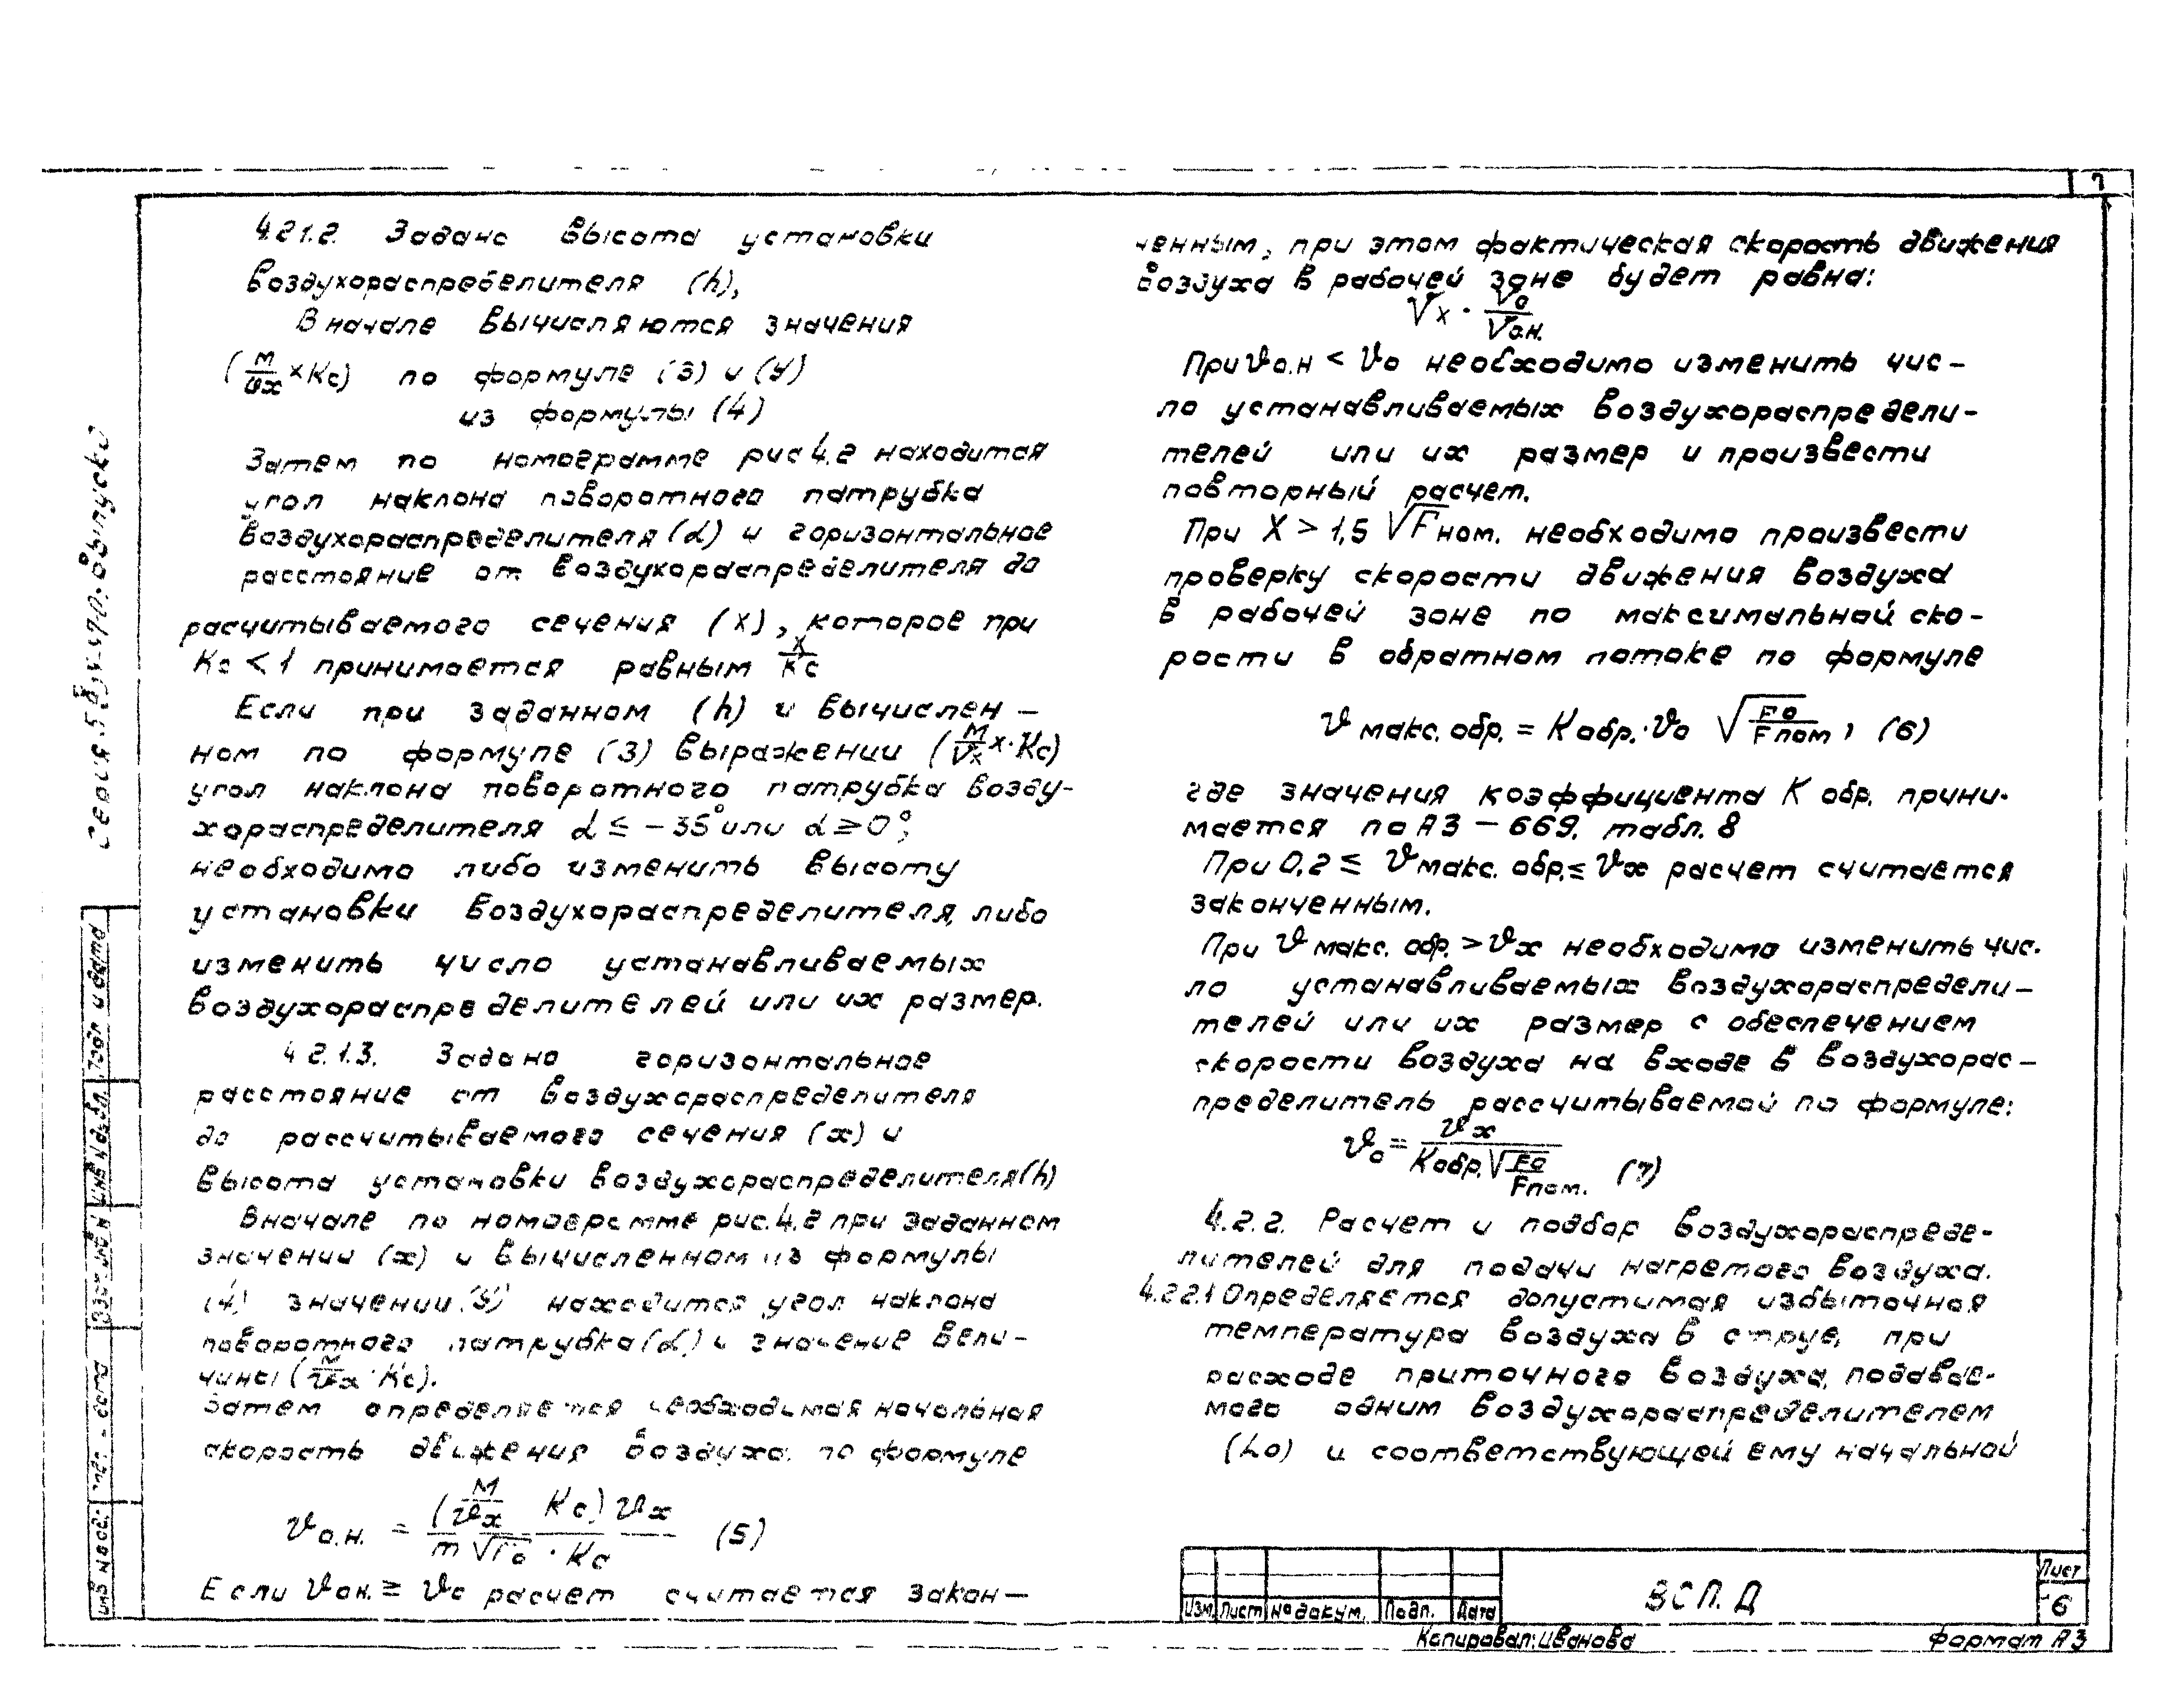 7
4.2.1.2. Задана высота установки
воздухораспределителя (h),
Вначале вычисляются значения
(м/υx × Kс) по формуле (3) и (У)
из формулы (4)
Затем по номограмме рис 4.2 находится
угол наклона поворотного патрубка
воздухораспределителя (α) и горизонтальное
расстояние от воздухораспределителя до
расчитываемого сечения (x), которое при
Kс < 1 принимается равным x/Kс
Если при заданном (h) и вычислен –
ном по формуле (3) выражении (м/Vx x·Kс)
угол наклона поворотного патрубка возду-
хораспределителя α ≤ – 35° или α ≥ 0°,
необходимо либо изменить высоту
установки воздухораспределителя, либо
изменить число устанавливаемых
воздухораспределителей или их размер.
4.2.1.3. Задано горизонтальное
расстояние от воздухораспределителя
до рассчитываемого сечения (x) и
высота установки воздухораспределителя (h)
Вначале по номограмме рис. 4.2 при заданном
значении (x) и вычисленном из формулы
(4) значении (У) находится угол наклона
поворотного патрубка (α) и значение вели-
чины (м/υx · Kс).
Затем определяется необходимая начальная
скорость движения воздуха по формуле
υо.н. = (м/υx Kс) υx / m √Fо · Kс (5)
Если υон. ≥ υо расчет считается закон –
ченным, при этом фактическая скорость движения
воздуха в рабочей зоне будет равна:
Vx · Vо/Vо.н.
При υо.н < υо необходимо изменить чис –
ло устанавливаемых воздухораспредели-
телей или их размер и произвести
повторный расчет.
При X > 1,5 √Fном. необходимо произвести
проверку скорости движения воздуха
в рабочей зоне по максимальной ско-
рости в обратном потоке по формуле
υ макс. обр. = K обр. · υо √Fо/Fпом , (6)
где значения коэффициента K обр. прини-
мается по А3 – 669, табл. 8
При 0,2 ≤ υ макс. обр. ≤ υx расчет считается
законченным.
При υ макс. обр. > υx необходимо изменить чис-
ло устанавливаемых воздухораспредели –
телей или их размер с обеспечением
скорости воздуха на входе в воздухорас –
пределитель рассчитываемой по формуле:
υо = υx / Kобр. √Fо/Fпом. (7)
4.2.2. Расчет и подбор воздухораспреде-
лителей для подачи нагретого воздуха.
4.2.2.1 Определяется допустимая избыточная
температура воздуха в струе, при
расходе приточного воздуха, подавае-
мого одним воздухораспределителем
(Lо) и соответствующей ему начальной
Изм. Лист № докум. Подп. Дата
ВСП. Д
Лист
6
Копировал: Иванова
Формат А3
Подп. и дата
Инв № дубл.
Взам инв №
Инв № подл.